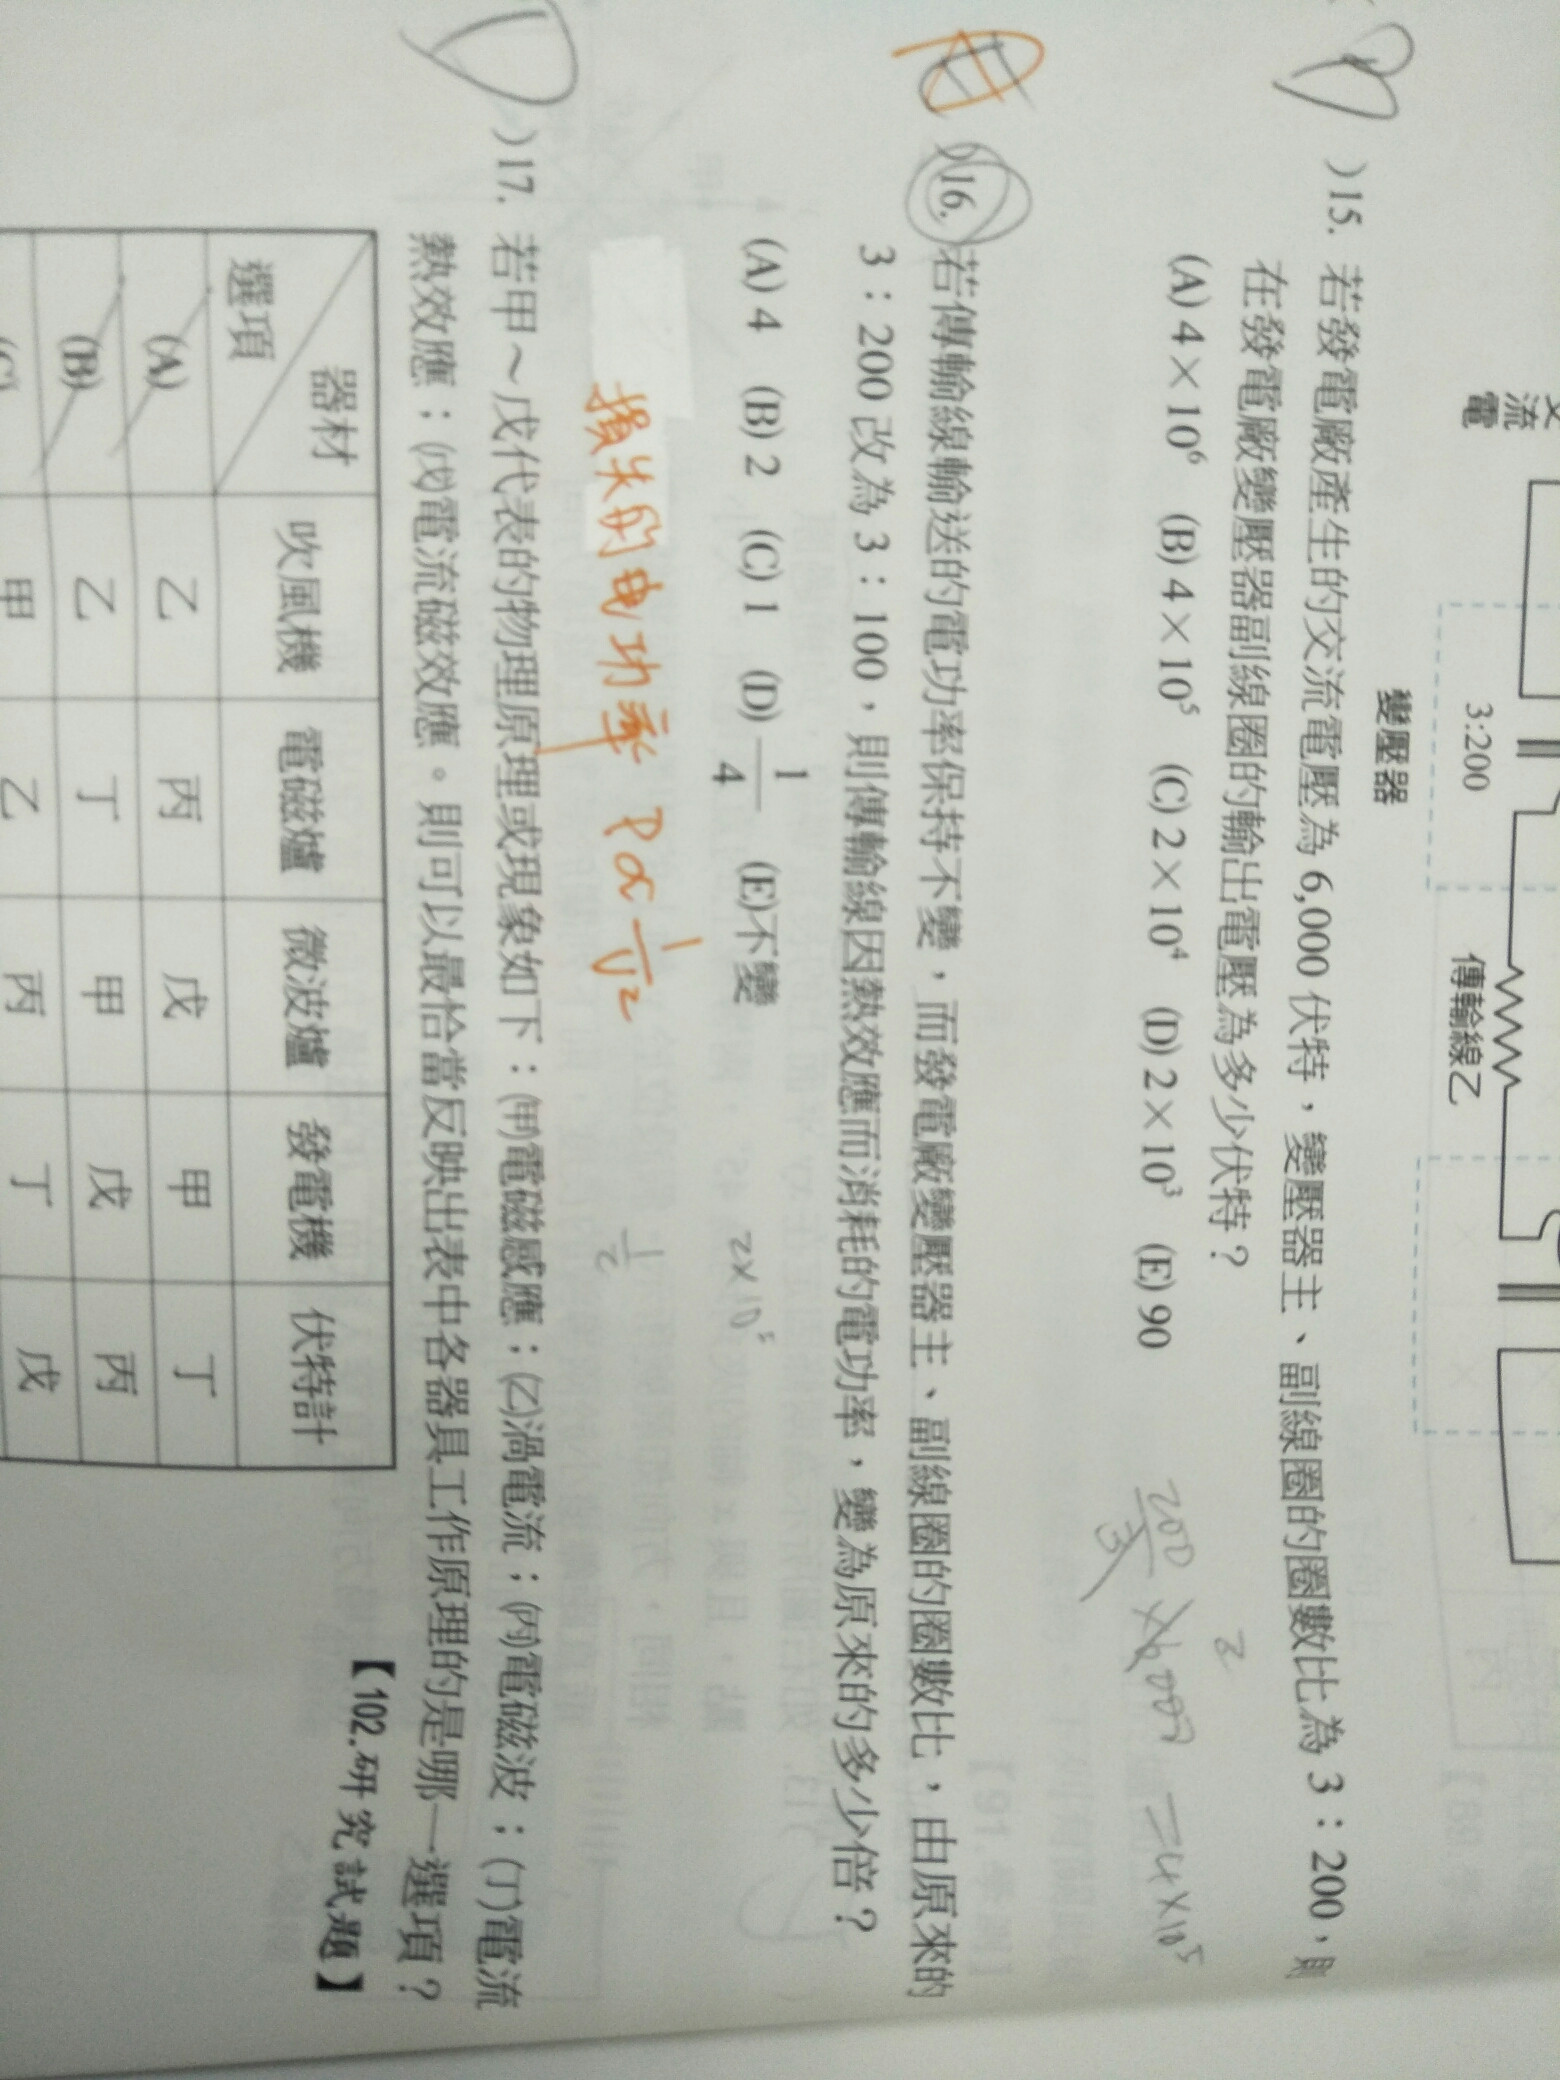 交流電
變壓器
3:200
傳輸線乙
B
)15. 若發電廠產生的交流電壓為 6,000 伏特，變壓器主、副線圈的圈數比為 3：200，則
在發電廠變壓器副線圈的輸出電壓為多少伏特？
(A) 4×10⁶ (B) 4×10⁵ (C) 2×10⁴ (D) 2×10³ (E) 90
200/3 × 6000 = 4×10⁵
2
A
)16. 若傳輸線輸送的電功率保持不變，而發電廠變壓器主、副線圈的圈數比，由原來的
3：200 改為 3：100，則傳輸線因熱效應而消耗的電功率，變為原來的多少倍？
(A) 4 (B) 2 (C) 1 (D) 1/4 (E)不變
2×10⁵
損失的电功率 P∝1/V²
1/2
D
)17. 若甲～戊代表的物理原理或現象如下：(甲)電磁感應；(乙)渦電流；(丙)電磁波；(丁)電流
熱效應；(戊)電流磁效應。則可以最恰當反映出表中各器具工作原理的是哪一選項？
【102.研究試題】
器材 選項 吹風機 電磁爐 微波爐 發電機 伏特計
(A) 乙 丙 戊 甲 丁
(B) 乙 丁 甲 戊 丙
(C) 甲 乙 丙 丁 戊